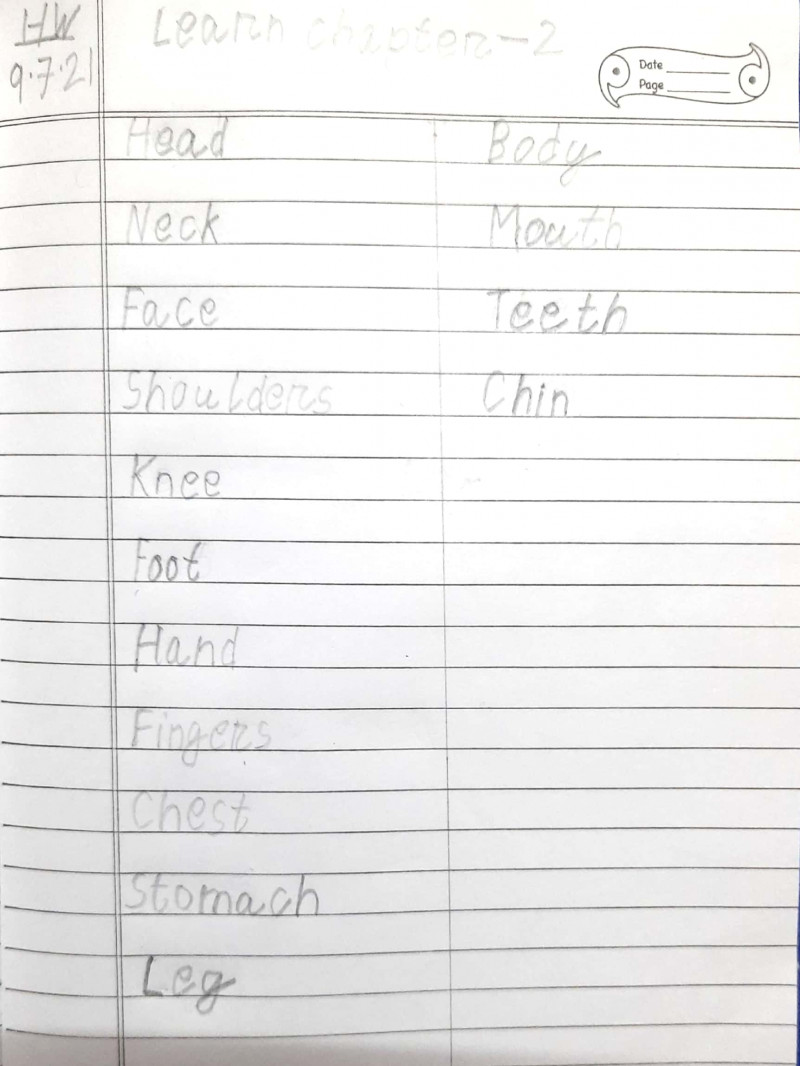 HW
9.7.21
Learn chapter-2
Date
Page
Head
Neck
Face
Shoulders
Knee
Foot
Hand
Fingers
Chest
Stomach
Leg
Body
Mouth
Teeth
Chin